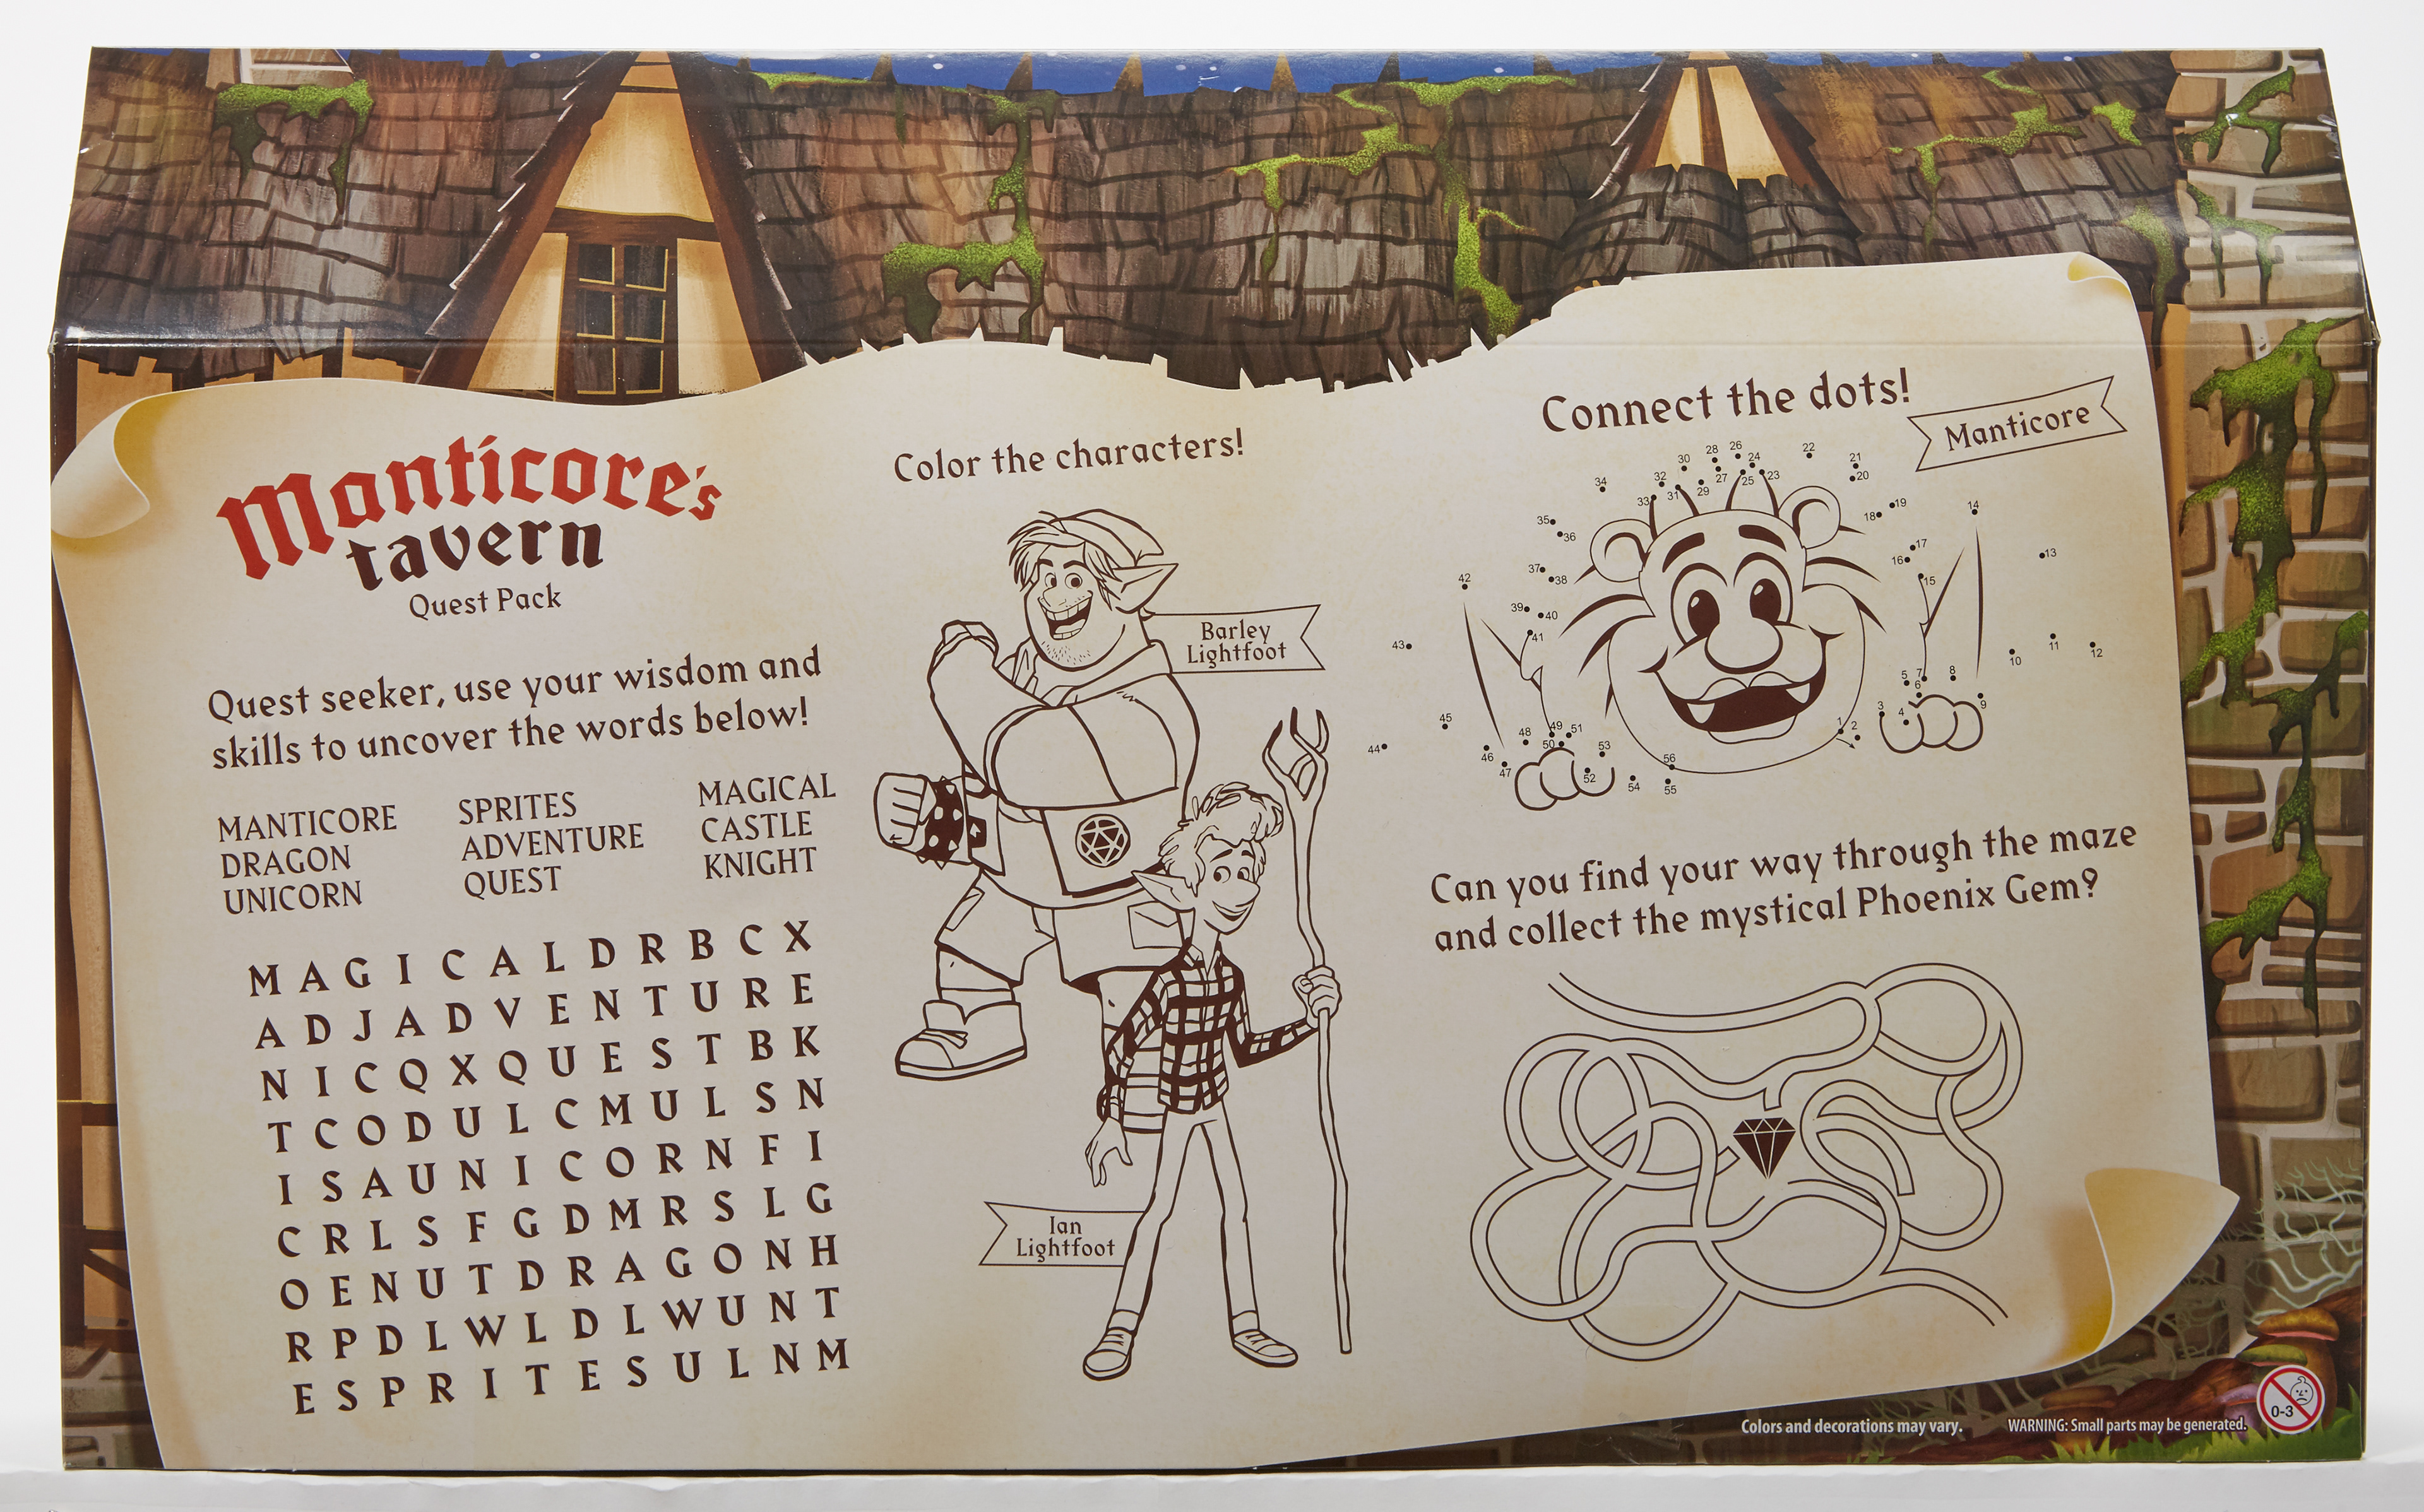 Manticore's
tavern
Quest Pack
Quest seeker, use your wisdom and
skills to uncover the words below!
MANTICORE SPRITES MAGICAL
DRAGON ADVENTURE CASTLE
UNICORN QUEST KNIGHT
M A G I C A L D R B C X
A D J A D V E N T U R E
N I C Q X Q U E S T B K
T C O D U L C M U L S N
I S A U N I C O R N F I
C R L S F G D M R S L G
O E N U T D R A G O N H
R P D L W L D L W U N T
E S P R I T E S U L N M
Color the characters!
Barley
Lightfoot
Ian
Lightfoot
Connect the dots!
Manticore
1
2
3
4
5
6
7
8
9
10
11
12
13
14
15
16
17
18
19
20
21
22
23
24
25
26
27
28
29
30
31
32
33
34
35
36
37
38
39
40
41
42
43
44
45
46
47
48
49
50
51
52
53
54
55
56
Can you find your way through the maze
and collect the mystical Phoenix Gem?
Colors and decorations may vary. WARNING: Small parts may be generated.
0-3